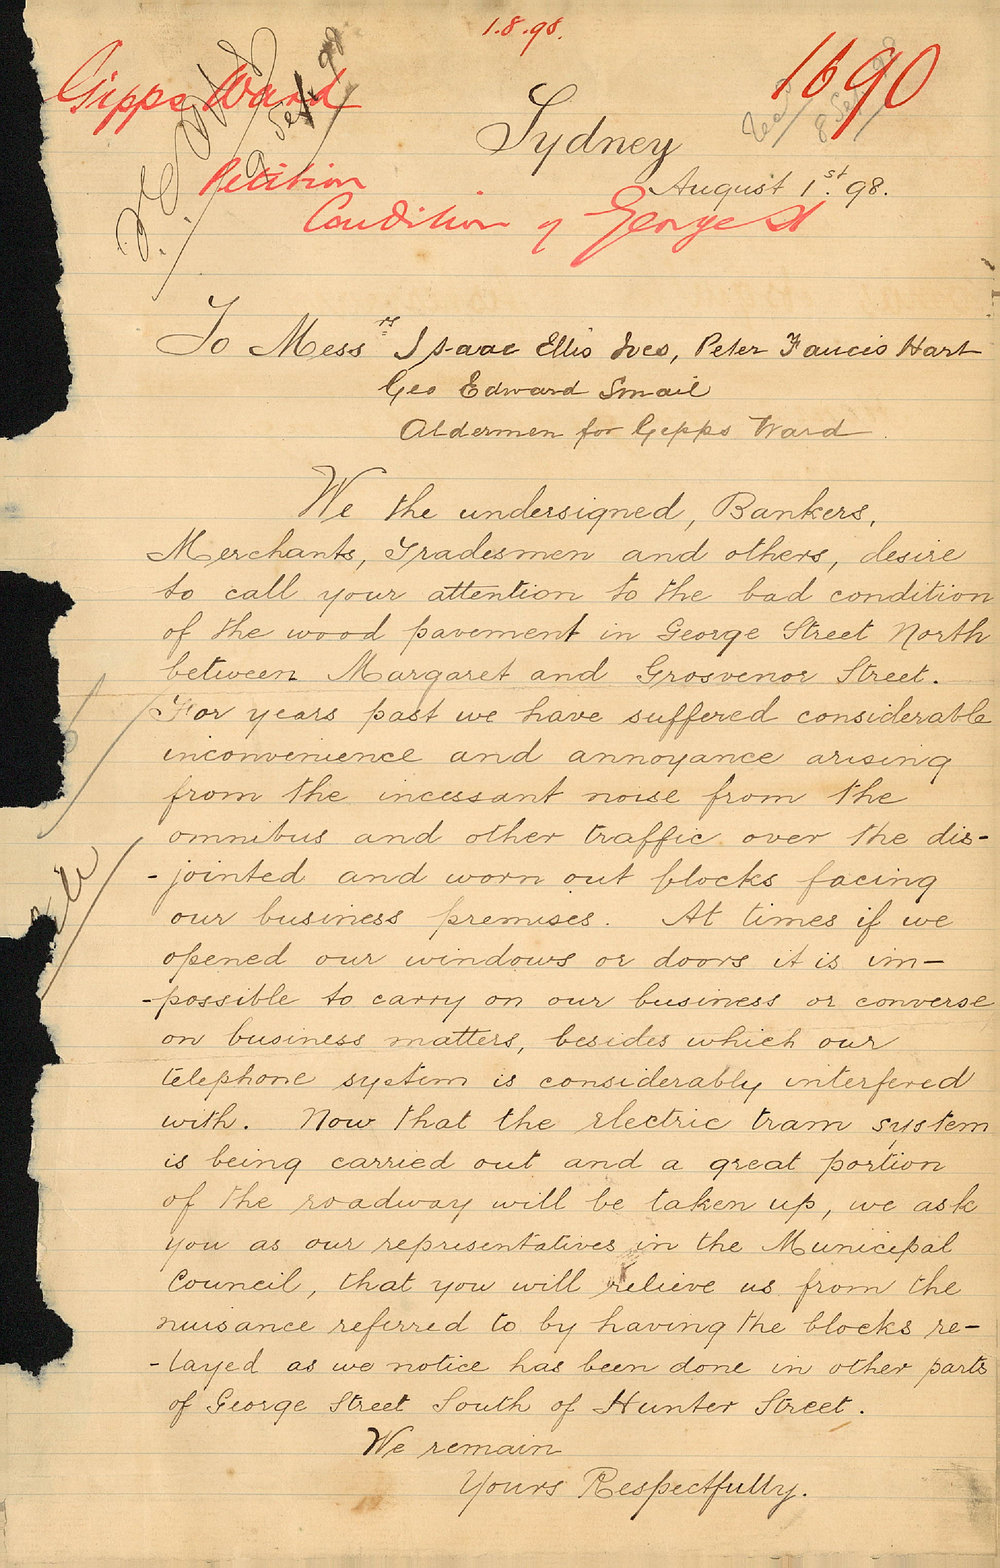 1.8.98.
Gipps Ward
1690
8 Sep 98
Sydney
Petition
August 1st. 98.
Condition of George St
To Messrs Isaac Ellis Ives, Peter Francis Hart
Geo Edward Smail
Aldermen for Gipps Ward
We the undersigned, Bankers,
Merchants, Tradesmen and others, desire
to call your attention to the bad condition
of the wood pavement in George Street North
between Margaret and Grosvenor Street.
For years past we have suffered considerable
inconvenience and annoyance arising
from the incessant noise from the
omnibus and other traffic over the dis-
-jointed and worn out blocks facing
our business premises. At times if we
opened our windows or doors it is im-
-possible to carry on our business or converse
on business matters, besides which our
telephone system is considerably interfered
with. Now that the Electric tram system
is being carried out and a great portion
of the roadway will be taken up, we ask
you as our representatives in the Municipal
Council, that you will relieve us from the
nuisance referred to by having the blocks re-
-layed as we notice has been done in other parts
of George Street South of Hunter Street.
We remain
Yours Respectfully.